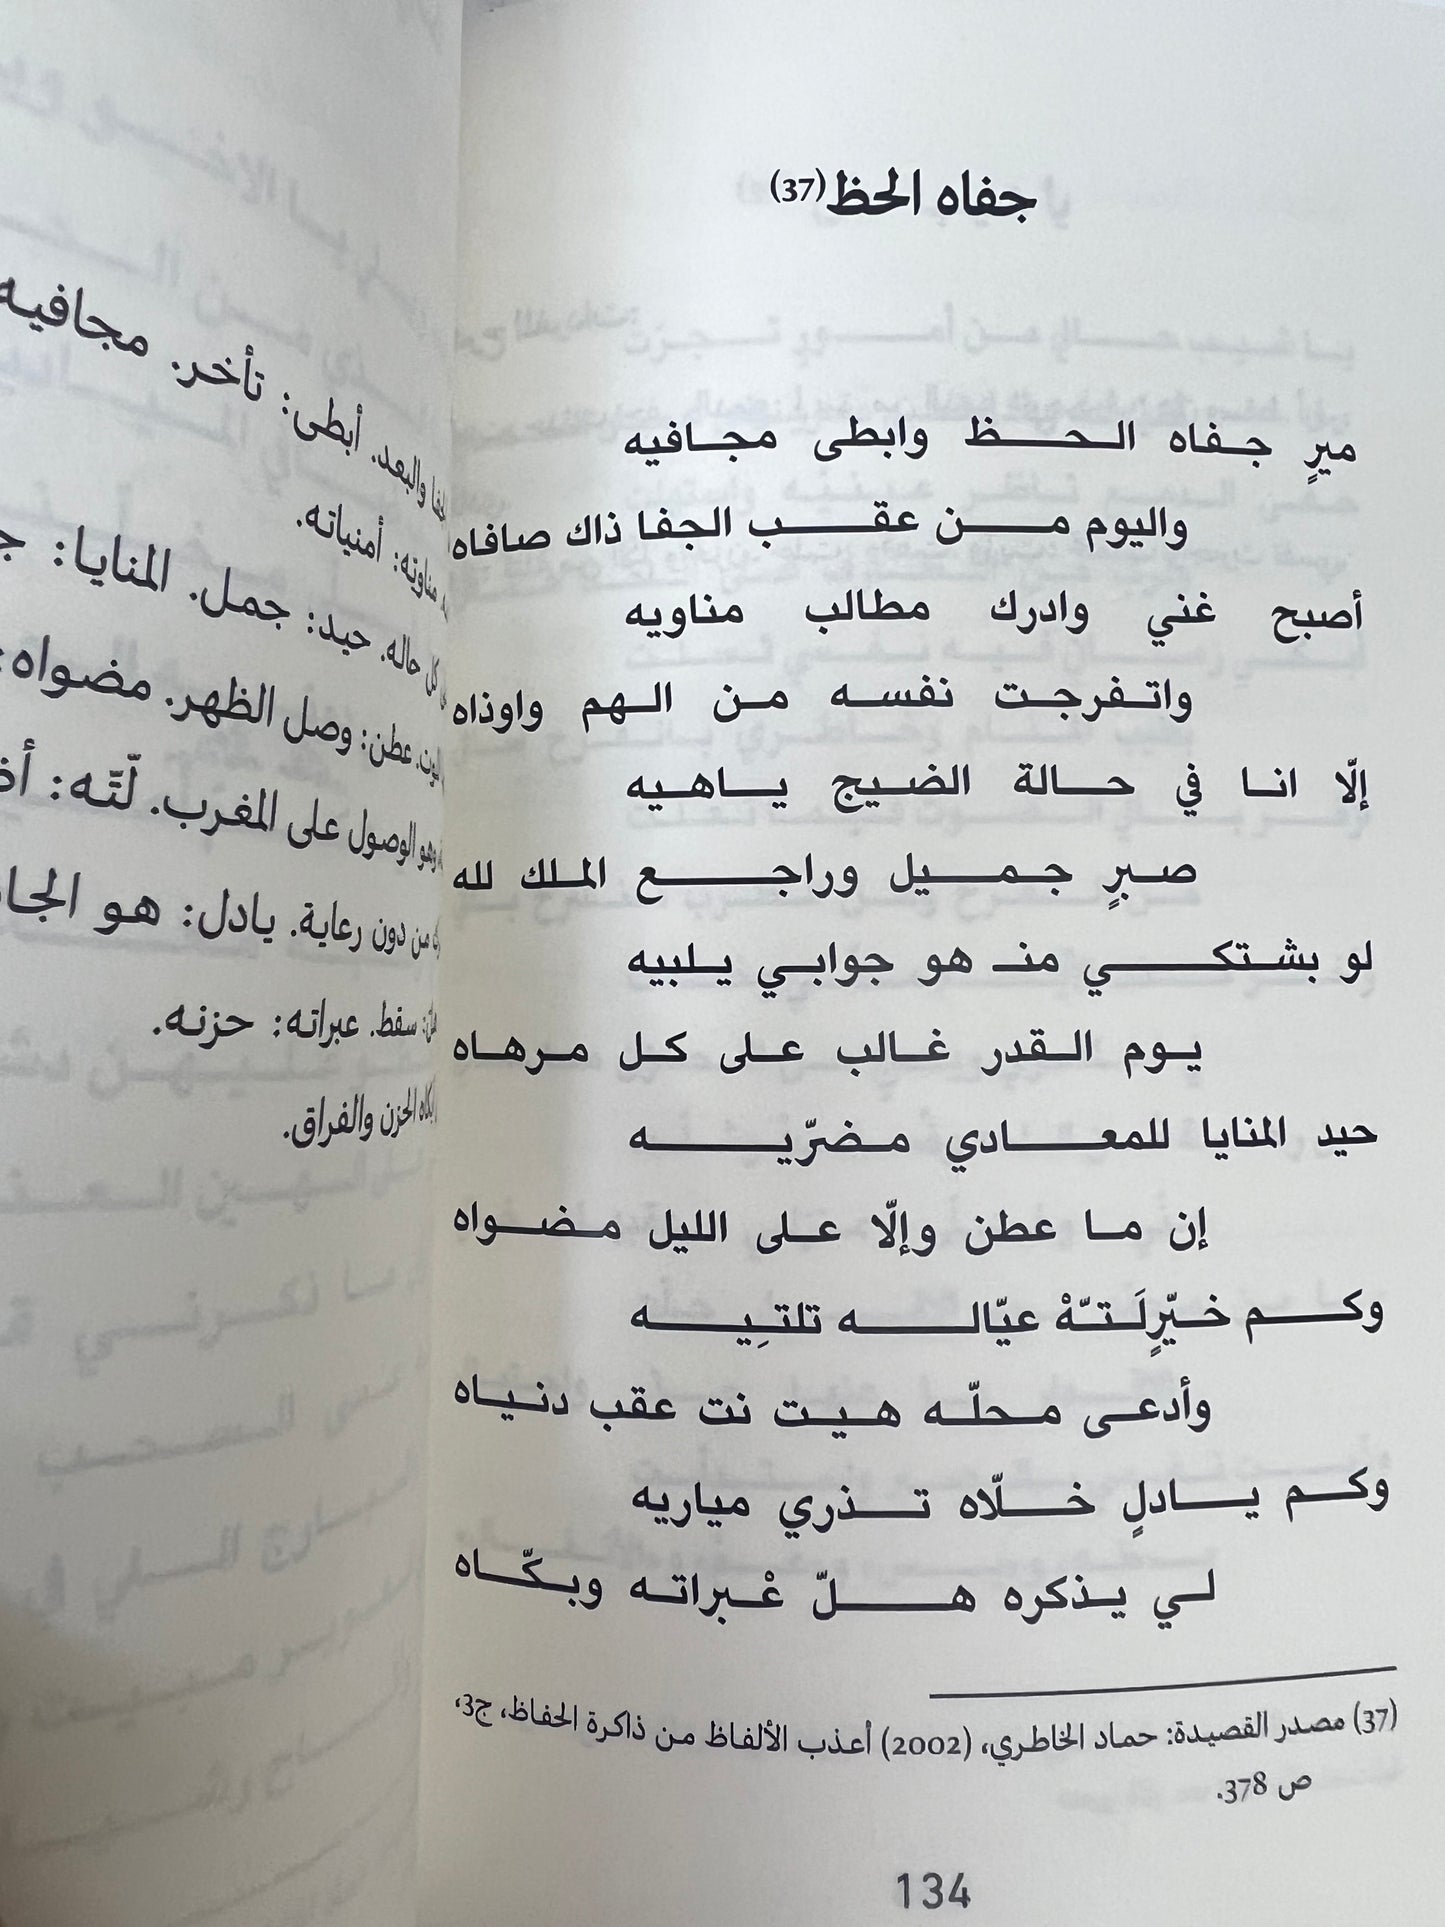 جفاه الحظ (37)
ميرٍ جفاه الحظ وابطى مجافيه
واليوم من عقب الجفا ذاك صافاه
أصبح غني وادرك مطالب مناويه
واتفرجت نفسه من الهم واوذاه
إلّا انا في حالة الضيج ياهيه
صبرٍ جميل وراجع الملك لله
لو بشتكي منـ هو جوابي يلبيه
يوم القدر غالب على كل مرهاه
حيد المنايا للمعادي مضرّيه
إن ما عطن وإلّا على الليل مضواه
وكم خيّرٍ لَتّهْ عيّاله تلتِيه
وأدعى محلّه هيت نت عقب دنياه
وكم يادلٍ خلّاه تذري مياريه
لي يذكره هلّ عْبراته وبكّاه
(37) مصدر القصيدة: حماد الخاطري، (2002) أعذب الألفاظ من ذاكرة الحفاظ، ج3،
ص 378.
134
والبعد. أبطى: تأخر. مجافيه
مناوته: أمنياته.
حاله. حيد: جمل. المنايا:
عطن: وصل الظهر. مضواه:
وهو الوصول على المغرب. لّتّه:
من دون رعاية. يادل: هو
سقط. عبراته: حزنه.
الحزن والفراق.